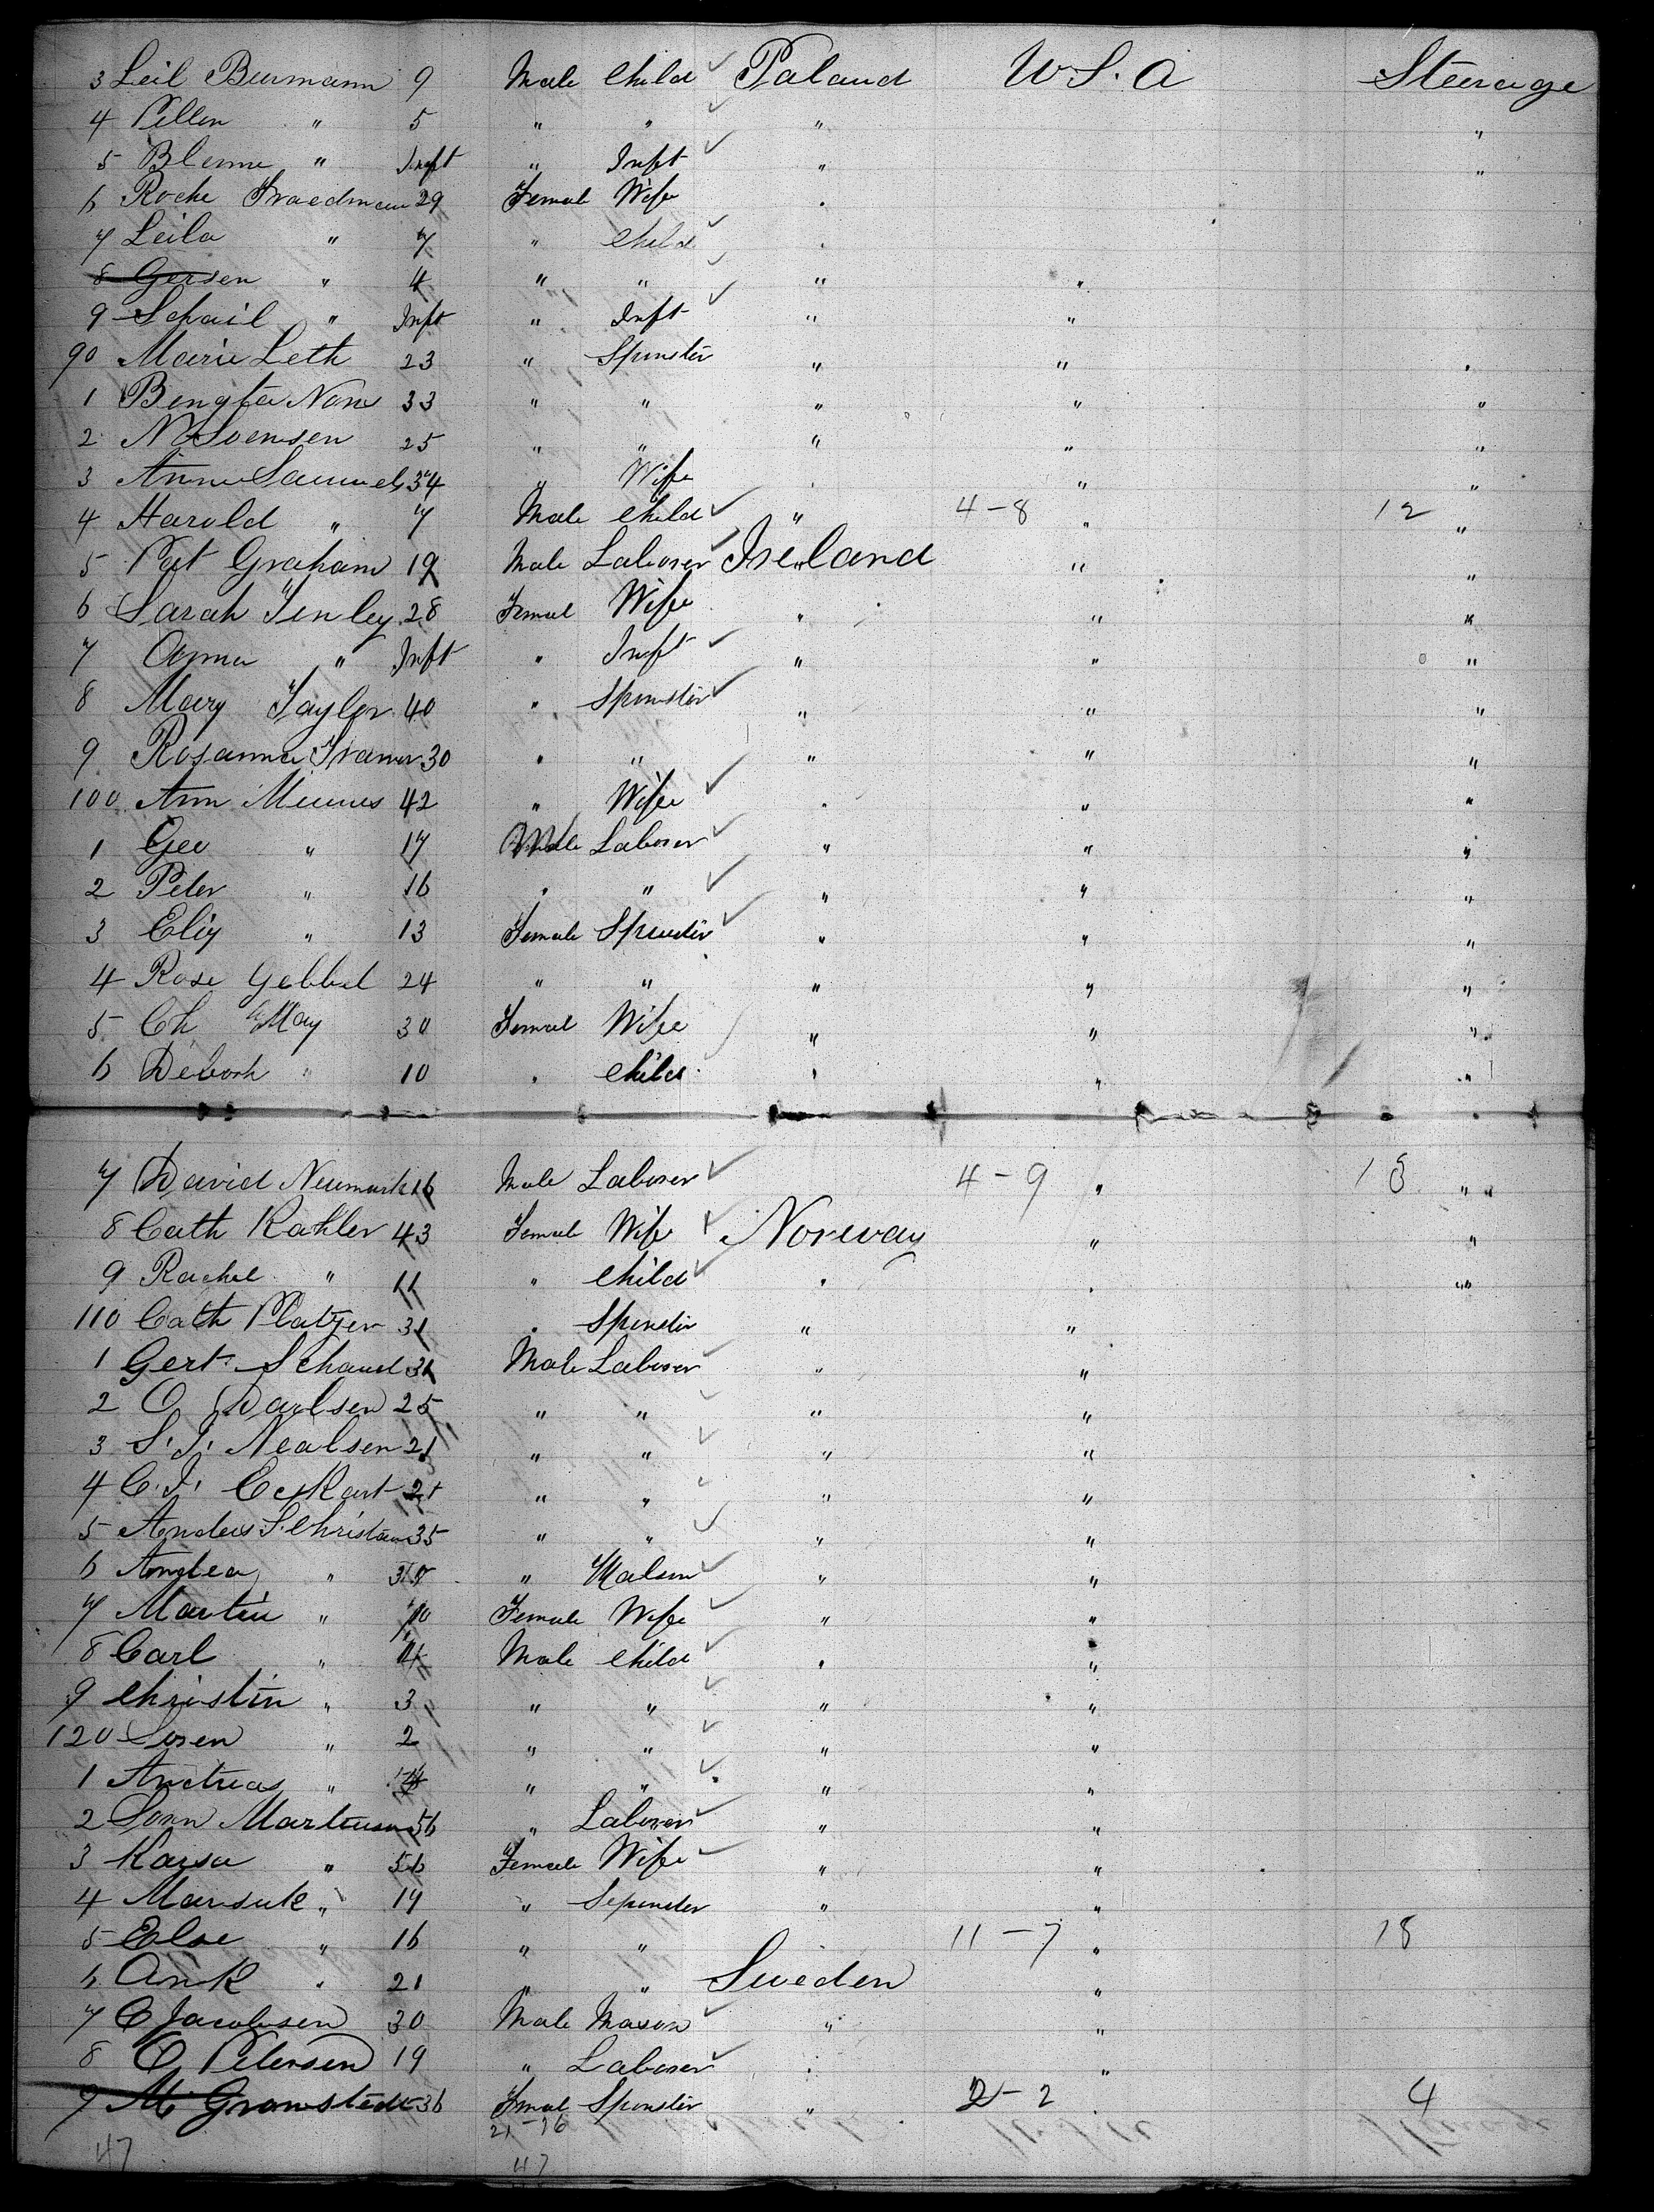 3 Leil Burmann 9 Male Child Poland U.S.A Steerage
4 Pellen " 5 " " " "
5 Blume " Inft " Inft " "
6 Roche Fraedman 29 Female Wife "
7 Leila " 7 " Child "
8 Gersen " 4 " " " "
9 Schail " Inft " Inft " "
90 Marie Leth 23 " Spinster " " "
1 Bengta Nans 33 " " " " "
2 N Svensen 25 " " " " "
3 Anna Samuels 34 " Wife " " "
4 Harold " 7 Male Child " 4-8 " 12 "
5 Pat Graham 19 Male Laborer Ireland " "
6 Sarah Finley 28 Female Wife " " "
7 Anna " Inft " Inft " " "
8 Mary Taylor 40 " Spinster " " "
9 Rosanna 30 " " " " "
100 Ann 42 " Wife " " "
1 Geo " 17 Male Laborer " " "
2 Peter " 16 " " " " "
3 Eliz " 13 Female Spinster " " "
4 Rose Gebbel 24 " " " " "
5 Ch May 30 Female Wife " " "
6 Deborh " 10 " Child " " "
7 David Neumark 16 Male Laborer 4-9 " 13 "
8 Cath Kahler 43 Female Wife Norway " "
9 Rachel " 11 " Child " " "
110 Cath Platzer 31 " Spinster " "
1 Gert Schaud 31 Male Laborer " "
2 O Darlsen 25 " " " "
3 S.J. Nealsen 21 " " " "
4 C.J. Eckart 21 " " " "
5 Anders S. Christian 35 " " " "
6 " " " "
7 Martin " 10 Female Wife " "
8 Carl " 4 Male Child " "
9 Christin " 3 " " " "
120 Soren " 2 " " " "
1 Andreas " " " " "
2 Sorn Martenson 56 " Laborer " "
3 Karsa " 56 Female Wife " "
4 " 19 " Sepinster " "
5 Else " 16 " " 11-7 " 18
6 Ank " 21 " " Sweden "
7 C Jacobsen 30 Male Mason " "
8 O Petersen 19 " Laborer " "
9 M Gronstedt 36 Femal Spinster " 2-2 " 4
21-26
47 47